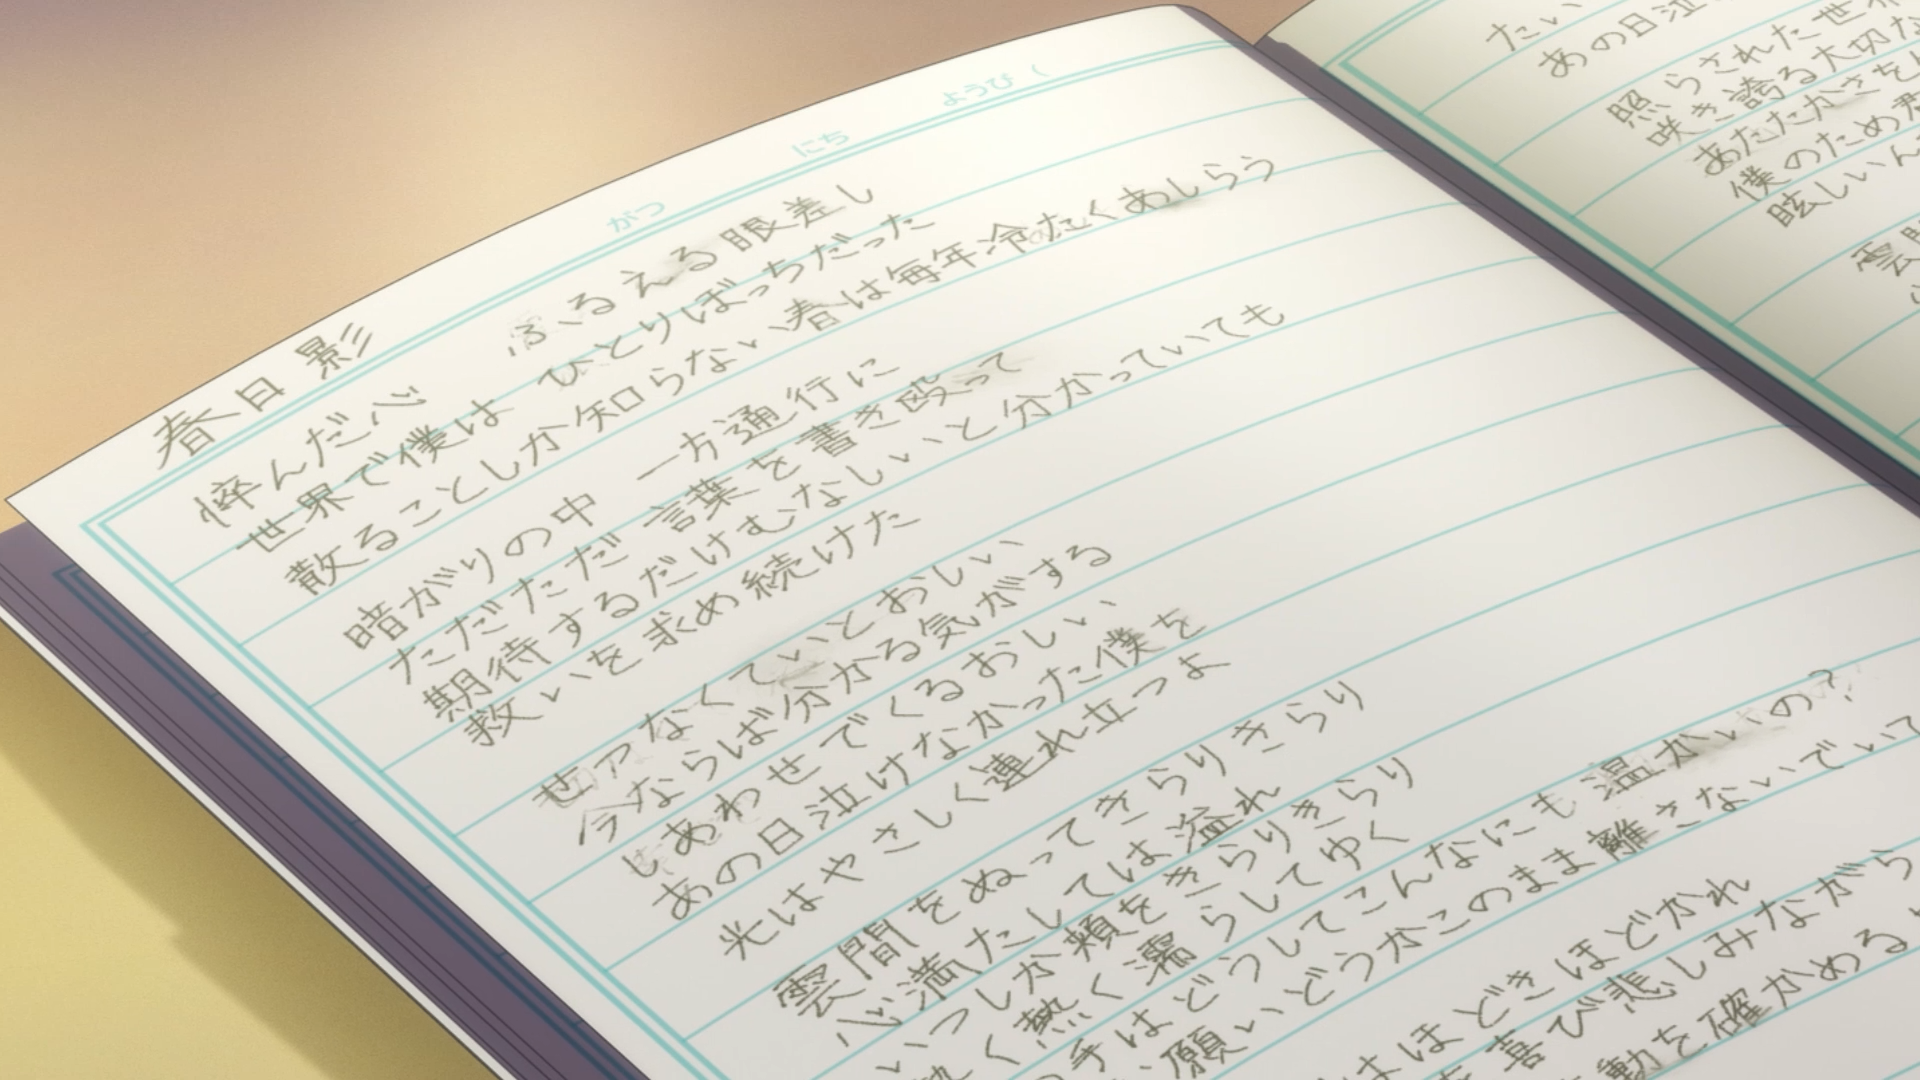 がつ にち ようび
春日影
悴んだ心 ふるえる眼差し
世界で僕は ひとりぼっちだった
散ることしか知らない春は毎年冷たくあしらう
暗がりの中 一方通行に
ただただ 言葉を書き殴って
期待するだけむなしいと分かっていても
救いを求め続けた
せつなくていとおしい
今ならば分かる気がする
しあわせでくるおしい
あの日泣けなかった僕を
光はやさしく連れ立つよ
雲間をぬってきらりきらり
心満たしては溢れ
いつしか頬をきらりきらり
熱く熱く濡らしてゆく
手はどうしてこんなにも温かいの?
願いどうかこのまま離さないでいて
はほどきほどかれ
喜び悲しみながら
動を確かめる
たい
あの日泣
照らされた世
咲き誇る大切な
あたたかさを
僕のため
眩しいん
雲